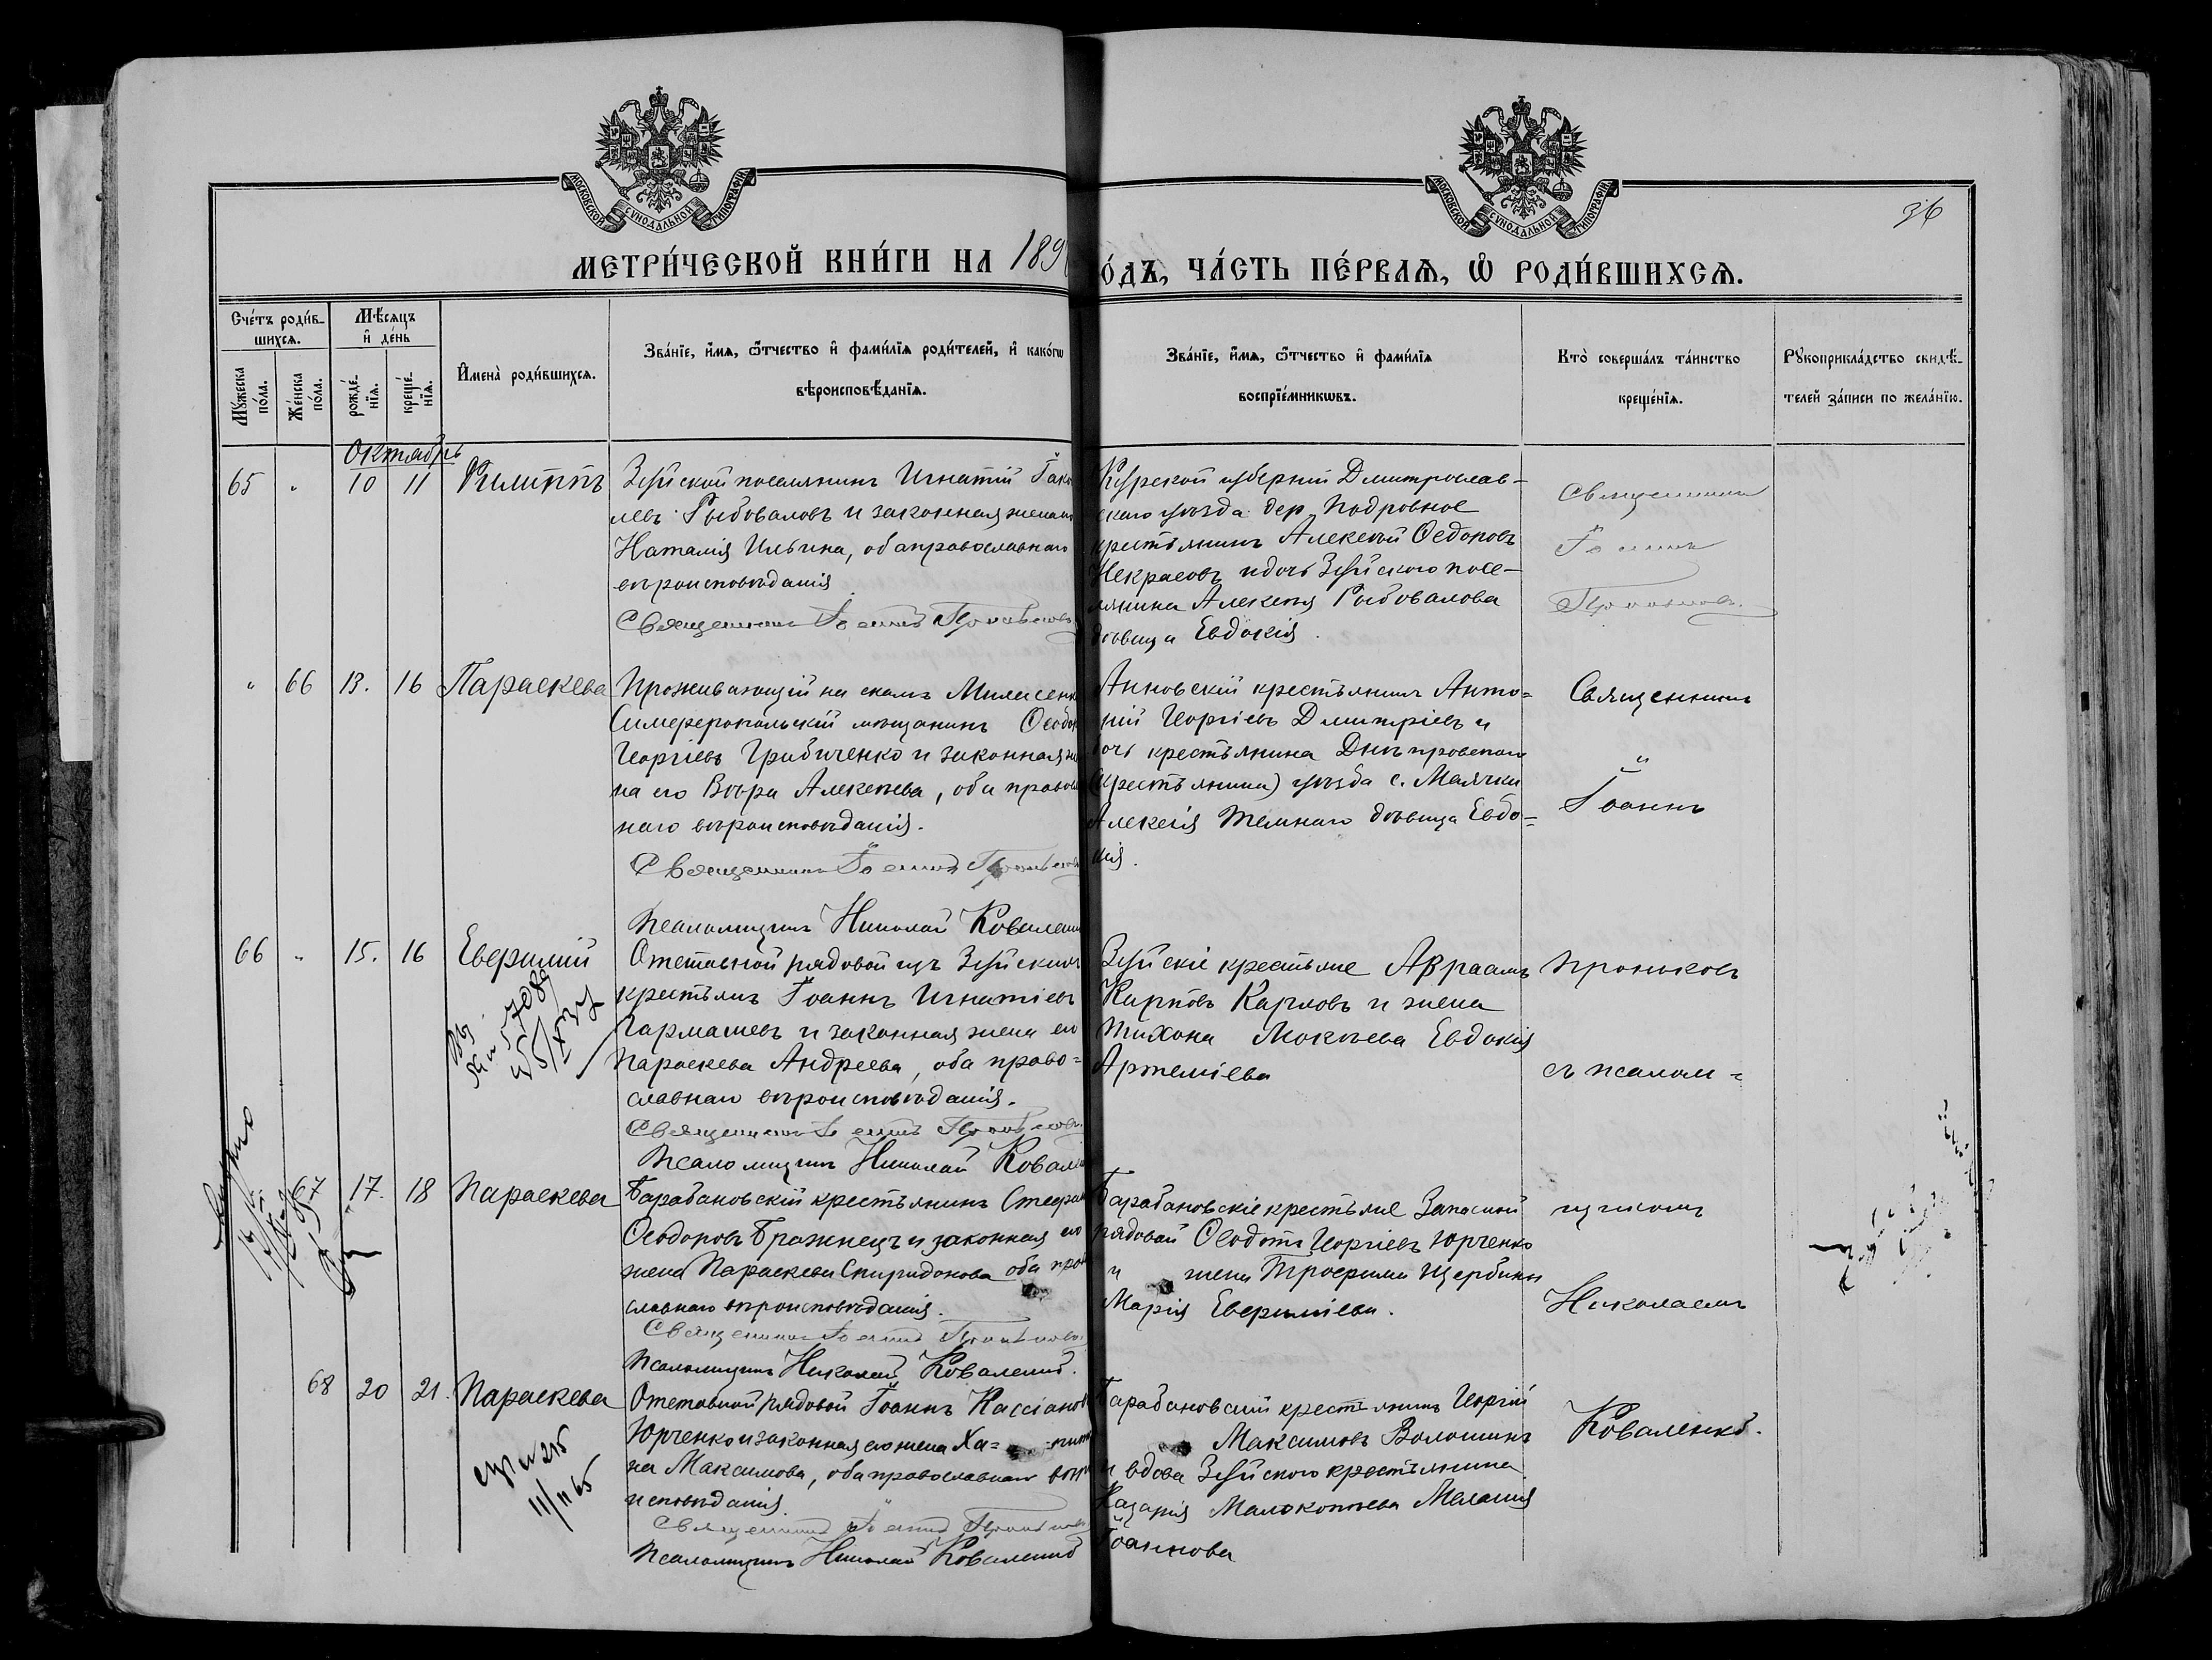 МОСКОВСКОЙ СѴНОДАЛЬНОЙ ТИПОГРАФІИ
МОСКОВСКОЙ СѴНОДАЛЬНОЙ ТИПОГРАФІИ
36
МЕТРИ́ЧЕСКОЙ КНИ́ГИ НА 189
О́ДЪ, ЧА́СТЬ ПЕ́РВАѦ, Ѿ РОДИ́ВШИХСѦ.
Сче́тъ роди́в-
шихсѧ.
Мѣ́сѧцъ
и҆ де́нь
Мꙋ́жеска
по́ла.
Же́нска
по́ла.
рожде́-
нїѧ.
креще́-
нїѧ.
И҆мена̀ роди́вшихсѧ.
Зва́нїе, и҆́мѧ, ѻ҆́тчество и҆ фами́лїѧ роди́телей, и҆ како́гѡ
вѣроисповѣ́данїѧ.
Зва́нїе, и҆́мѧ, ѻ҆́тчество и҆ фами́лїѧ
воспрїе́мникѡвъ.
Кто̀ соверша́лъ та́инство
креще́нїѧ.
Рꙋкоприкла́дство свидѣ́-
телей за́писи по жела́нїю.
Октябрь
65 " 10 11 Филиппъ
Зуйской поселянинъ Игнатій Іако
левъ Рыбоваловъ и законная жена
Наталія Ильина, оба православнаго
вѣроисповѣданія
Священникъ Іоаннъ
Курской губерніи Дмитрослав-
скаго уѣзда дер. Подровное
крестьянинъ Алексѣй Ѳедоровъ
Некрасовъ и дочь Зуйского посе-
лянина Алексѣя Рыбовалова
дѣвица Евдокія.
Священникъ
Іоаннъ
" 66 13. 16 Параскева
Проживающій на скалѣ
Симферопольскій мѣщанинъ Ѳеодо
Георгіевъ Грибиченко и законная же
на его Вѣра Алексѣева, оба правосл
наго вѣроисповѣданія.
Священникъ Іоаннъ
Псаломщикъ Николай Ковален
Анновскій крестьянинъ Анто=
ній Георгіевъ Димитріевъ и
дочь крестьянина Днѣпровскаго
(крестьянина) уѣзда с. Маячки
Алексія Темнаго дѣвица Евдо=
кія.
Священникъ
Іоаннъ
66 " 15. 16 Евфимій
Отставной рядовой изъ Зуйскихъ
крестьянъ Іоаннъ Игнатіевъ
Гармашевъ и законная жена его
Параскева Андреева, оба право=
славнаго вѣроисповѣданія.
Священникъ Іоаннъ
Псаломщикъ Николай Ковале
Зуйскіе крестьяне Авраамъ
Карповъ Карловъ и жена
Тихона Мокѣева Евдокія
Артеміева
съ псалом=
67 17. 18 Параскева
Барабановскій крестьянинъ Стефан
Ѳеодоровъ Бражнецъ и законная его
жена Параскева Спиридонова оба прав
славнаго вѣроисповѣданія.
Священникъ Іоаннъ
Псаломщикъ Николай Коваленко.
Барабановскіе крестьяне Запасной
рядовой Ѳеодотъ Георгіевъ Юрченко
и жена Трофима Щербины
Марія Евфиміева.
щикомъ
Николаемъ
68 20 21. Параскева
Отставной рядовой Іоаннъ Кассіановъ
Юрченко и законная его жена Ха=
на Максимова, оба православнаго вѣро
исповѣданія.
Священникъ Іоаннъ
Псаломщикъ Николай Коваленко
Барабановскій крестьянинъ Георгій
Максимовъ Волошинъ
и вдова Зуйского крестьянина
Назарія Малокотѣева Меланія
Іоаннова
Коваленко.
11/II 65